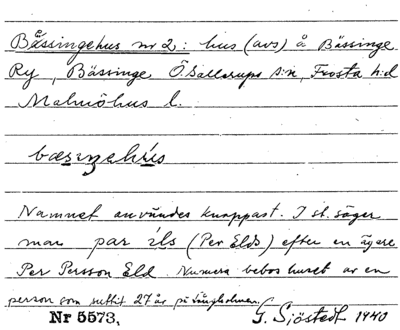 Bässingehus nr 2: hus (avs) å Bässinge
Ry, Bässinge Ö. Sallerups s:n, Frosta h:d
Malmöhus l.
bæsıŋehu̇s
Namnet användes knappast. I st. säger
man par ils (Per Elds) efter en ägare
Per Persson Eld. Numera bebos huset av en
person som suttit 27 år på Långholmen.
Nr 5573, G. Sjöstedt 1940